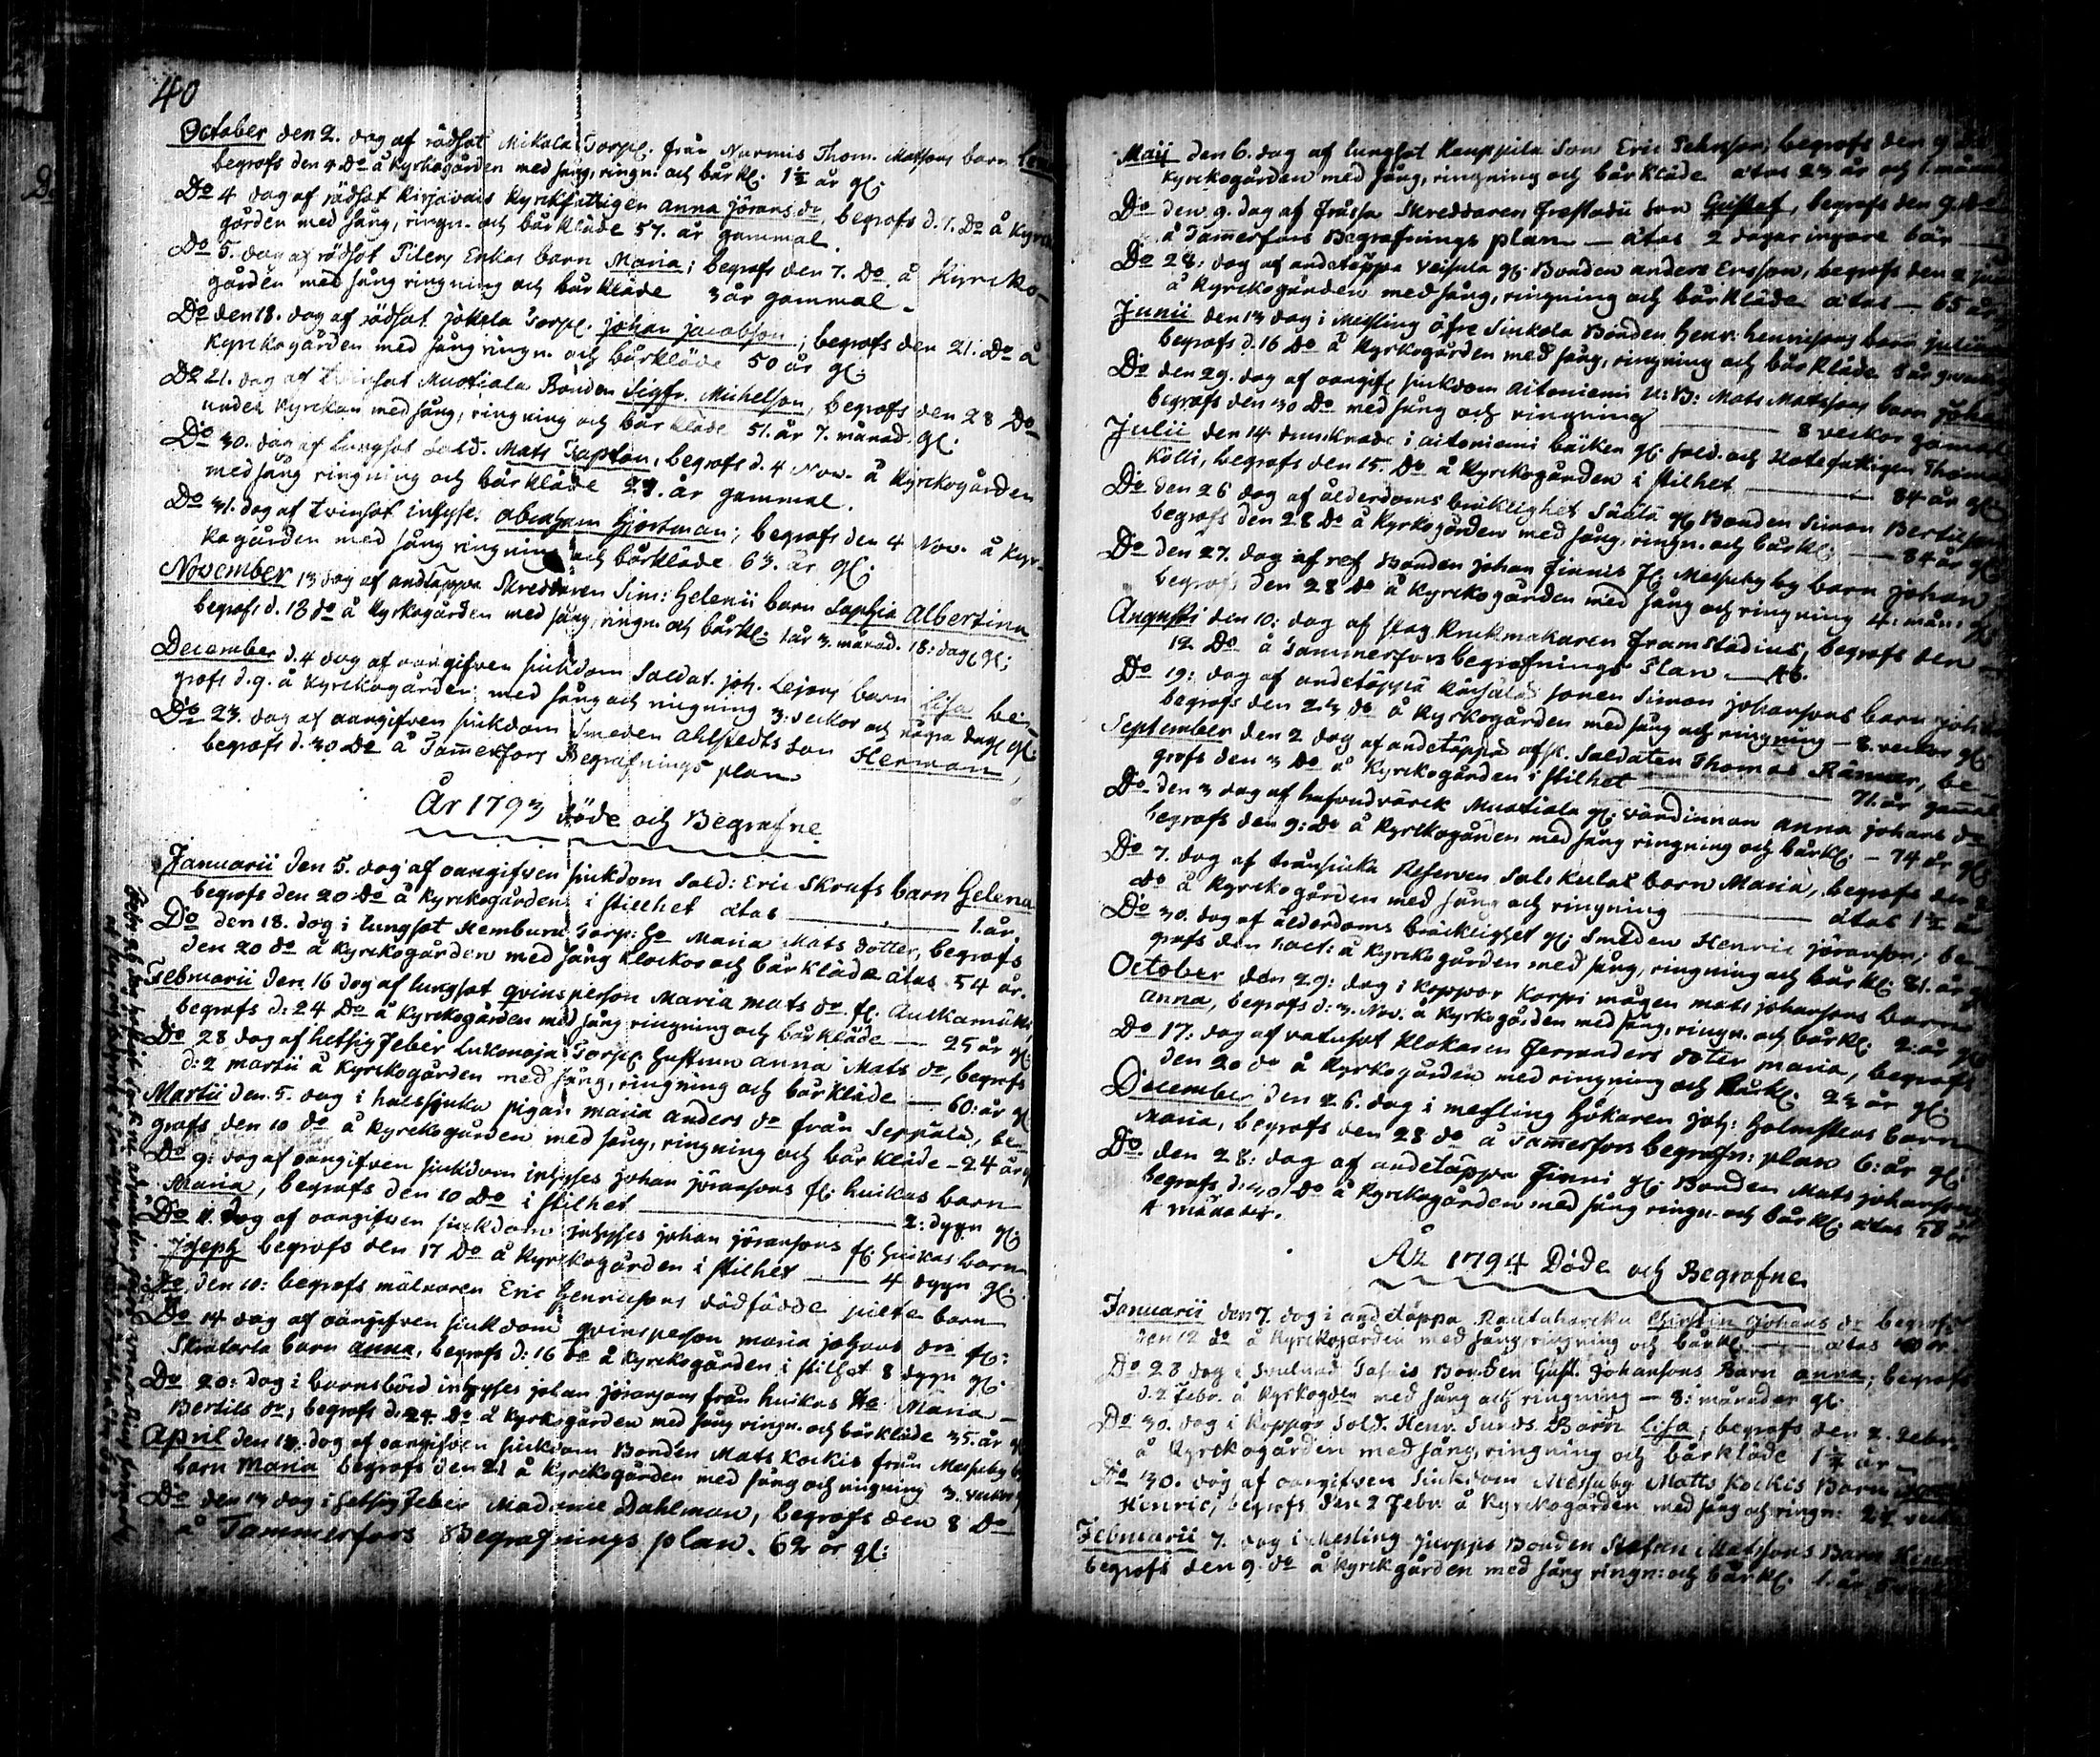 40
October den 2. dag af rödsot Mikola Torp. från Nurmis Thom. Matssons barn
begrofs den 4 Do å Kyrkogården med sång, ringn: och bårkl: 1½ år gl:
Do 4 dag af rödsot Kirjavais Kyrkfattigen Anna Jörans dr, begrofs d. 7. Do å Kyrko
gården med sång, ringn. och bårkläde 57. år gammal.
Do 5. dag af rödsot Pilens Enkas barn Maria; begrofs den 7. Do å Kyrcko-
gården med sång ringning och bårkläde 3 år gammal.
Do den 18. dag af rödsot Jokela Torp. Johan Jacobsson; begrofs den 21. Do å
Kyrckogården med sång ringn. och bårkläde 50 år gl:
Do 21. dag af tvinsot Muotiala Bonden Sigfr. Michelson, begrofs den 28 Do
under Kyrckan med sång, ringning och bårkläde 51. år 7. månad. gl:
Do 30. dag af lungsot Sold. Mats Taptou, begrofs d. 4 Nov. å Kyrckogården
med sång ringning och bårkläde 27. år gammal.
Do 31. dag af tvinsot inhyses Abraham Hjortman; begrofs den 4 Nov. å Kyr-
kogården med sång ringning och bårkläde 63. år gl:
November 13 dag af andtäppa Skreddaren Sim: Helenii barn Sophia Albertina
begrofs d. 18 do å Kyrkogården med sång, ringn. och bårkl: 1 år 3. månad. 18: dag. gl:
December d. 4 dag af oangifven siukdom Soldat. Joh. Lejons barn Lisa be-
grofs d. 9. å Kyrckogården med sång och ringning 3: veckor och några dag. gl:
Do 23. dag af oangifven siukdom Smeden Ahlstedts Son Herman,
begrofs d. 30 Do å Tammerfors Begrafnings plan
År 1793 döde och Begrafne
Januarii den 5. dag af oangifven siukdom Sold: Eric Skrafs barn Helena
begrofs den 20 Do å Kyrckogården i stillhet ätas 1. år
Do den 18. dag i lungsot Torp: Ho Maria Mats dotter, begrofs
den 20 do å Kyrckogården med sång klockor och bårkläde ätas 54 år.
Februarii den 16 dag af lungsot qvinsperson Maria Mats dr
begrofs d: 24 Do å Kyrckogården med sång ringning och bårkläde — 25 år gl:
Do 28 dag af hetsig feber Lukonoja Torp. hustrun Anna Mats dr, begrofs
d: 2 Martii å Kyrckogården med sång, ringning och bårkläde — 60: år gl
Martii den 5. dag i halssjuka pigan Maria Anders dr från Seppälä, be
grofs den 10 do å Kyrckogården med sång, ringning och bårkläde — 24 år
Do 9: dag af oangifven siukdom inhyses Johan Jöransons fl: Huikas barn
Maria, begrofs den 10 Do i stilhet 2: dygn gl:
Do 11. dag af oangifven siukdom inhyses Johan Jöransons fl: Huikas barn
Joseph begrofs den 17 Do å Kyrckogården i stilhet — 4 dygn gl:
Do den 10: begrofs målaren Eric Henricsons dödfödde pilte barn
Do 14 dag af oangifven siukdom qvinsperson Maria Johans
barn Anna, begrofs d: 16 do å Kyrckogården i stilhet 8 dygn gl:
Do 20: dag i barnsbörd inhyses Johan Jöransons från Huikas Ho Maria
Bertils dr, begrofs d. 24 Do å Kyrckogården med sång ringn. och bårkläde 35. år
April den dag af oangifven siukdom Bonden Mats Kockis från Messuby
barn Maria begrofs den 21 å Kyrckogården med sång och ringning 3. veckor
Do den 13 dag i hetsig feber Madame Dahlman, begrofs den 8 Do
å Tammerfors Begrafnings plan. 62 år gl:
Maij den 6. dag af lungsot Kauppila Son Eric begrofs den 9
Kyrckogården med sång, ringning och bårkläde ätas 23 år och 1. månad
Do den 9. dag af fråssa Skreddaren Son Gustaf, begrofs den
å Tammerfors Begrafnings plan — ätas 2 dagar
Do 28: dag af andetäppa Veisula gl: Bonden Anders Ersson, begrofs den
å Kyrckogården med sång, ringning och bårkläde ätas — 65 år
Junii den 13 dag i Messling öfre Sinkola Bonden Henr: Henricsons barn
begrofs d. 16 Do å Kyrckogården med sång, ringning och bårkläde
Do den 29. dag af oangifv siukdom Aitoniemi N: B: Mats Matssons barn Johan
begrofs den 30 Do med sång och ringning 8 veckor gammal
Julii den 14 drunknade i Aitoniemi bäcken gl: Sold. och Rotefattigen Thomas
Kolli, begrofs den 15. Do å Kyrckogården i stilhet 84 år gl:
Do den 26 dag af ålderdoms bräcklighet gl: Bonden Simon Bertilsson
begrofs den 28 do å Kyrckogården med sång, ringn. och bårkl: — 84 år gl:
Do den 27. dag af ref Bonden Johan Finnis fl: Messuby by barn Johan
begrofs den 28 do å Kyrckogården med sång och ringning 4: mån: gl
Augusti den 10: dag af slag Krukmakaren Framstadius, begrofs den
12 Do å Tammerfors begrafnings Plan — 46.
Do 19: dag af andetäppa sonen Simon Johansons barn
begrofs den 23 do å Kyrckogården med sång och ringning — 8. veckor gl:
September den 2 dag af andetäppa afsk. Soldaten Thomas be-
grofs den 3 Do å Kyrckogården i stilhet 71. år gammal
Do den 3 dag af hufvudvärck Muotiala gl: värdinnan Anna Johans dr
begrofs den 9: Do å Kyrckogården med sång ringning och bårkl: — 74 år gl
Do 7. dag af Reserven Sol. barn Maria, begrofs den
do å Kyrckogården med sång och ringning ätas 1½ år
Do 30. dag af ålderdoms bräcklighet gl: Smeden Henric Jöranson; be-
grofs den 1 oct: å Kyrckogården med sång, ringning och bårkl: 81. år
October den 29: dag i koppor Korpi mågen Mats Johansons barn
Anna, begrofs d: 3. Nov. å Kyrckogården med sång, ringn. och bårkl: 2: år gl
Do 17: dag af vatusot Klokaren doter Maria, begrofs
den 20 do å Kyrckogården med ringning och bårkl: 23 år gl:
December den 26. dag i messling Håkaren Joh: Holmstens barn
Maria, begrofs den 28 do å Tammerfors begrafn: plan 6: år gl:
Do den 28: dag af andetäppa Finni gl: Bonden Mats Johansson
begrofs d: Do å Kyrckogården med sång ringn. och bårkl: ätas 58 år
månader.
År 1794 Döde och Begrafne
Januarii den 7. dag i andtäppa Rautaharcku Christin Johans dr begrofs
den 12 do å Kyrckogården med sång ringning och bårkl. — ätas
Do 28 dag i Bonden Gust. Johansons Barn Anna; begrofs
d. 2 Febr. å Kyrkogden med sång och ringning — 8: månader gl.
Do 30. dag i Koppor Sold. Henr. Sunds Barn Lisa, begrofs den 2. Febr.
å Kyrckogården med sång, ringning och bårkläde 1¼ år —
Do 30. dag af oangifven siukdom Messuby Matts Kockis Barn
Hinric, begrofs den 2 Febr å Kyrckogården med sång och ringn:
Februarii 7. dag i Messling Juoppis Bonden Stefan Matssons Barn
begrofs den 9. do å Kyrckogården med sång ringn: och bårkl: 1. år